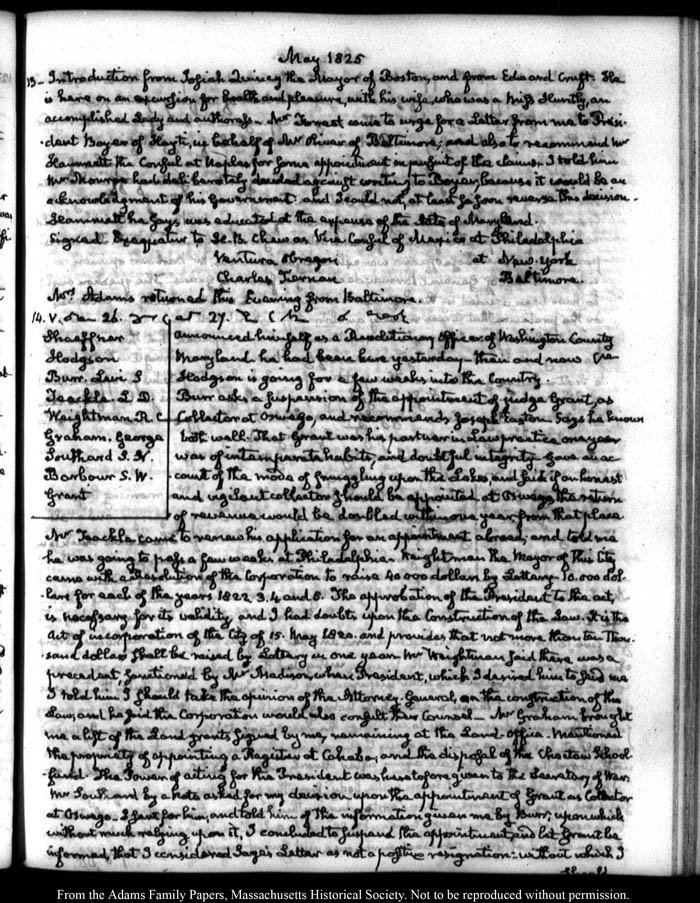 May 1825
13 - Introduction from Josiah Quincy the Mayor of Boston, and from Edward Cruft. He
is here on an excursion for health and pleasure, with his wife, who was a Miss Huntly, an
accomplished Lady and authoress - Mr Forrest came to urge for a Letter from me to Presi-
-dent Boyer of Hayti, in behalf of Mr of Baltimore; and also to recommend Mr
Hammett the Consul at Naples for some appointment in pursuit of the claims. I told him
Mr Monroe had deliberately decided against writing to Boyer, because it would be an
acknowledgment of his Government and I could not, at least so soon reverse this decision -
Hammett he says was educated at the expense of the State of Maryland.
Signed Exequatur to H. B. Chew as Vice Consul of Mexico at Philadelphia
Ventura Obregon at New-York
Charles Tiernan Baltimore.
Mrs Adams returned this Evening from Baltimore.
14. V.
Shaaffner
Hodgson
Burr. Levi S
Teackle. L D.
Weightman R. C
Graham. George
Southard S. L.
Barbour S. W.
Grant
announced himself as a Revolutionary Officer of Washington County
Maryland he had been here yesterday - then and now
Hodgson is going for a few weeks into the Country.
Burr asks a suspension of the appointment of Judge Grant, as
Collector at Oswego, and recommends Joseph Easton. Says he knows
both well. That Grant was his partner in Law practice one year
was of intemperate habits, and doubtful integrity. Gave an ac-
-count of the mode of smuggling upon the Lakes, and said if an honest
and vigilant collector should be appointed at Oswego, the return
of revenue would be doubled within one year, from that place
Mr Teackle came to renew his application for an appointment abroad; and told me
he was going to pass a few weeks at Philadelphia - Weightman the Mayor of this City
came with a Resolution of the Corporation to raise 40 000 dollars by Lottery - 10.000 dol-
-lars for each of the years 1822. 3. 4 and 5. The approbation of the President to the act,
is necessary for its validity, and I had doubts upon the Construction of the Law. It is the
Act of incorporation of the City of 15. May 1820. and provides that not more than ten Thou-
-sand dollars shall be raised by Lottery in one year. Mr Weightman said there was a
precedent, sanctioned by Mr Madison, when President, which I desired him to send me
I told him I should take the opinion of the Attorney-General, on the construction of the
Law; and he said the Corporation would also consult their Counsel - Mr Graham brought
me a list of the Land grants signed by me, remaining at the Land-office. Mentioned
the propriety of appointing a Register at Cahaba, and the disposal of the Choctaw School-
-fund. The Power of acting for the President was heretofore given to the Secretary of War.
Mr Southard by a Note asked for my decision upon the appointment of Grant as Collector
at Oswego. I sent for him, and told him of the information given me by Burr, upon which
without much relying upon it, I concluded to suspend the appointment and let Grant be
informed, that I considered Sage's Letter as not a positive resignation: without which I
should
From the Adams Family Papers, Massachusetts Historical Society. Not to be reproduced without permission.